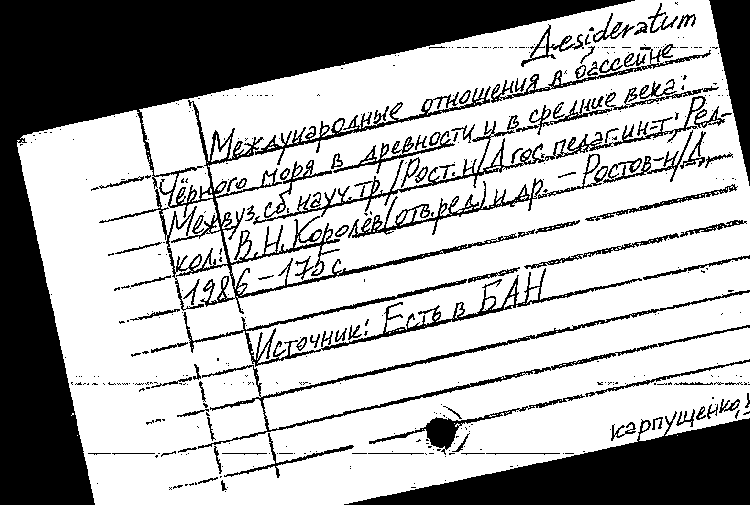 Desideratum
Международные отношения в бассейне
Чёрного моря в древности и в средние века:
Межвуз. сб. науч. тр. / Рост. н/Д гос. педаг. ин-т; Ред-
кол.: В.Н. Королёв (отв. ред.) и др. – Ростов-н/Д,
1986 – 175 с.
Источник: Есть в БАН
карпущенко,